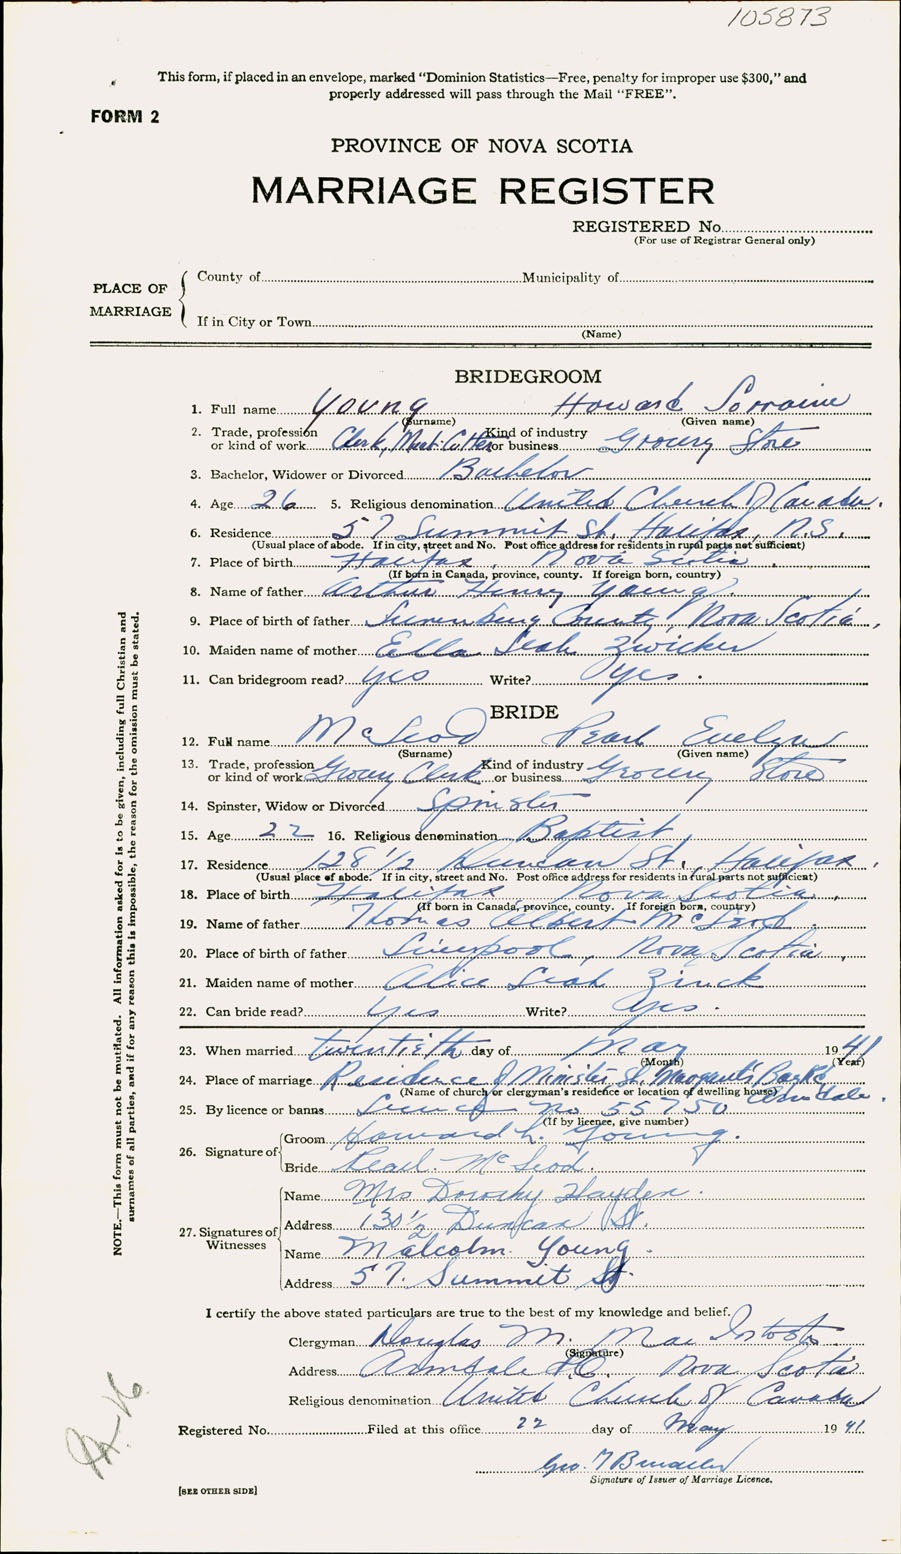 105873
This form, if placed in an envelope, marked "Dominion Statistics—Free, penalty for improper use $300," and
properly addressed will pass through the Mail "FREE".
FORM 2
PROVINCE OF NOVA SCOTIA
MARRIAGE REGISTER
REGISTERED No.
(For use of Registrar General only)
PLACE OF MARRIAGE
County of Municipality of
If in City or Town
(Name)
BRIDEGROOM
1. Full name Young Howard Lorraine
(Surname) (Given name)
2. Trade, profession or kind of work Clerk, Meat-Cutter Kind of industry or business Grocery Store
3. Bachelor, Widower or Divorced Bachelor
4. Age 26 5. Religious denomination United Church of Canada.
6. Residence 57 Summit St. Halifax, N.S.
(Usual place of abode. If in city, street and No. Post office address for residents in rural parts not sufficient)
7. Place of birth Halifax, Nova Scotia.
(If born in Canada, province, county. If foreign born, country)
8. Name of father Arthur Henry Young.
9. Place of birth of father Lunenburg County, Nova Scotia,
10. Maiden name of mother Ella Leah Zwicker
11. Can bridegroom read? yes Write? yes.
BRIDE
12. Full name McLeod Pearl Evelyn
(Surname) (Given name)
13. Trade, profession or kind of work Grocery Clerk Kind of industry or business Grocery Store
14. Spinster, Widow or Divorced Spinster
15. Age 22 16. Religious denomination Baptist,
17. Residence 128 1/2 Duncan St., Halifax.
(Usual place of abode. If in city, street and No. Post office address for residents in rural parts not sufficient)
18. Place of birth Halifax Nova Scotia,
(If born in Canada, province, county. If foreign born, country)
19. Name of father Thomas Albert McLeod.
20. Place of birth of father Liverpool, Nova Scotia,
21. Maiden name of mother Alice Leah Zinck
22. Can bride read? yes Write? yes.
23. When married twentieth day of May 1941
(Month) (Year)
24. Place of marriage Residence of Minister, St. Margaret's Bay Rd Armdale.
(Name of church or clergyman's residence or location of dwelling house)
25. By licence or banns Licence No 55750
(If by licence, give number)
26. Signature of
Groom Howard L. Young.
Bride Pearl. McLeod.
27. Signatures of Witnesses
Name Mrs Dorothy Hayden.
Address 130 1/2 Duncan St.
Name Malcolm Young.
Address 57. Summit St.
I certify the above stated particulars are true to the best of my knowledge and belief.
Clergyman Douglas M.
(Signature)
Address Armdale P.O. Nova Scotia
Religious denomination United Church of Canada
Registered No. Filed at this office 22 day of May 1941.
Geo.
Signature of Issuer of Marriage Licence.
[SEE OTHER SIDE]
NOTE.—This form must not be mutilated. All information asked for is to be given, including full Christian and
surnames of all parties, and if for any reason this is impossible, the reason for the omission must be stated.